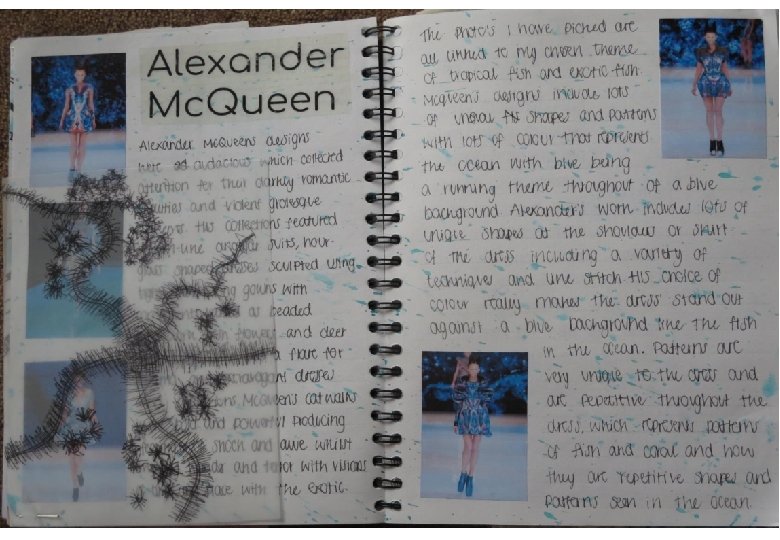 Alexander
McQueen
Alexander McQueens designs
were audacious which collected
attention for their darkly romantic
and violent grotesque
His collections featured
suits, hour-
shaped dresses sculpted using
gowns with
as beaded
flowers and deer
a flare for
dresses
McQueens catwalks
and powerful producing
shock and awe whilst
and terror with visions
place with the exotic.
The photo's I have picked are
all linked to my chosen theme
of tropical fish and exotic fish.
McQueens designs include lots
of unusual shapes and patterns
with lots of colour that represents
the ocean with blue being
a running theme throughout of a blue
background. Alexander's work includes lots of
unique shapes at the shoulder or skirt
of the dress including a variety of
techniques and line stitch. His choice of
colour really makes the dress stand out
against a blue background like the fish
in the ocean. Patterns are
very unique to the dress and
are repetitive throughout the
dress, which represents patterns
of fish and coral and how
they are repetitive shapes and
patterns seen in the ocean.